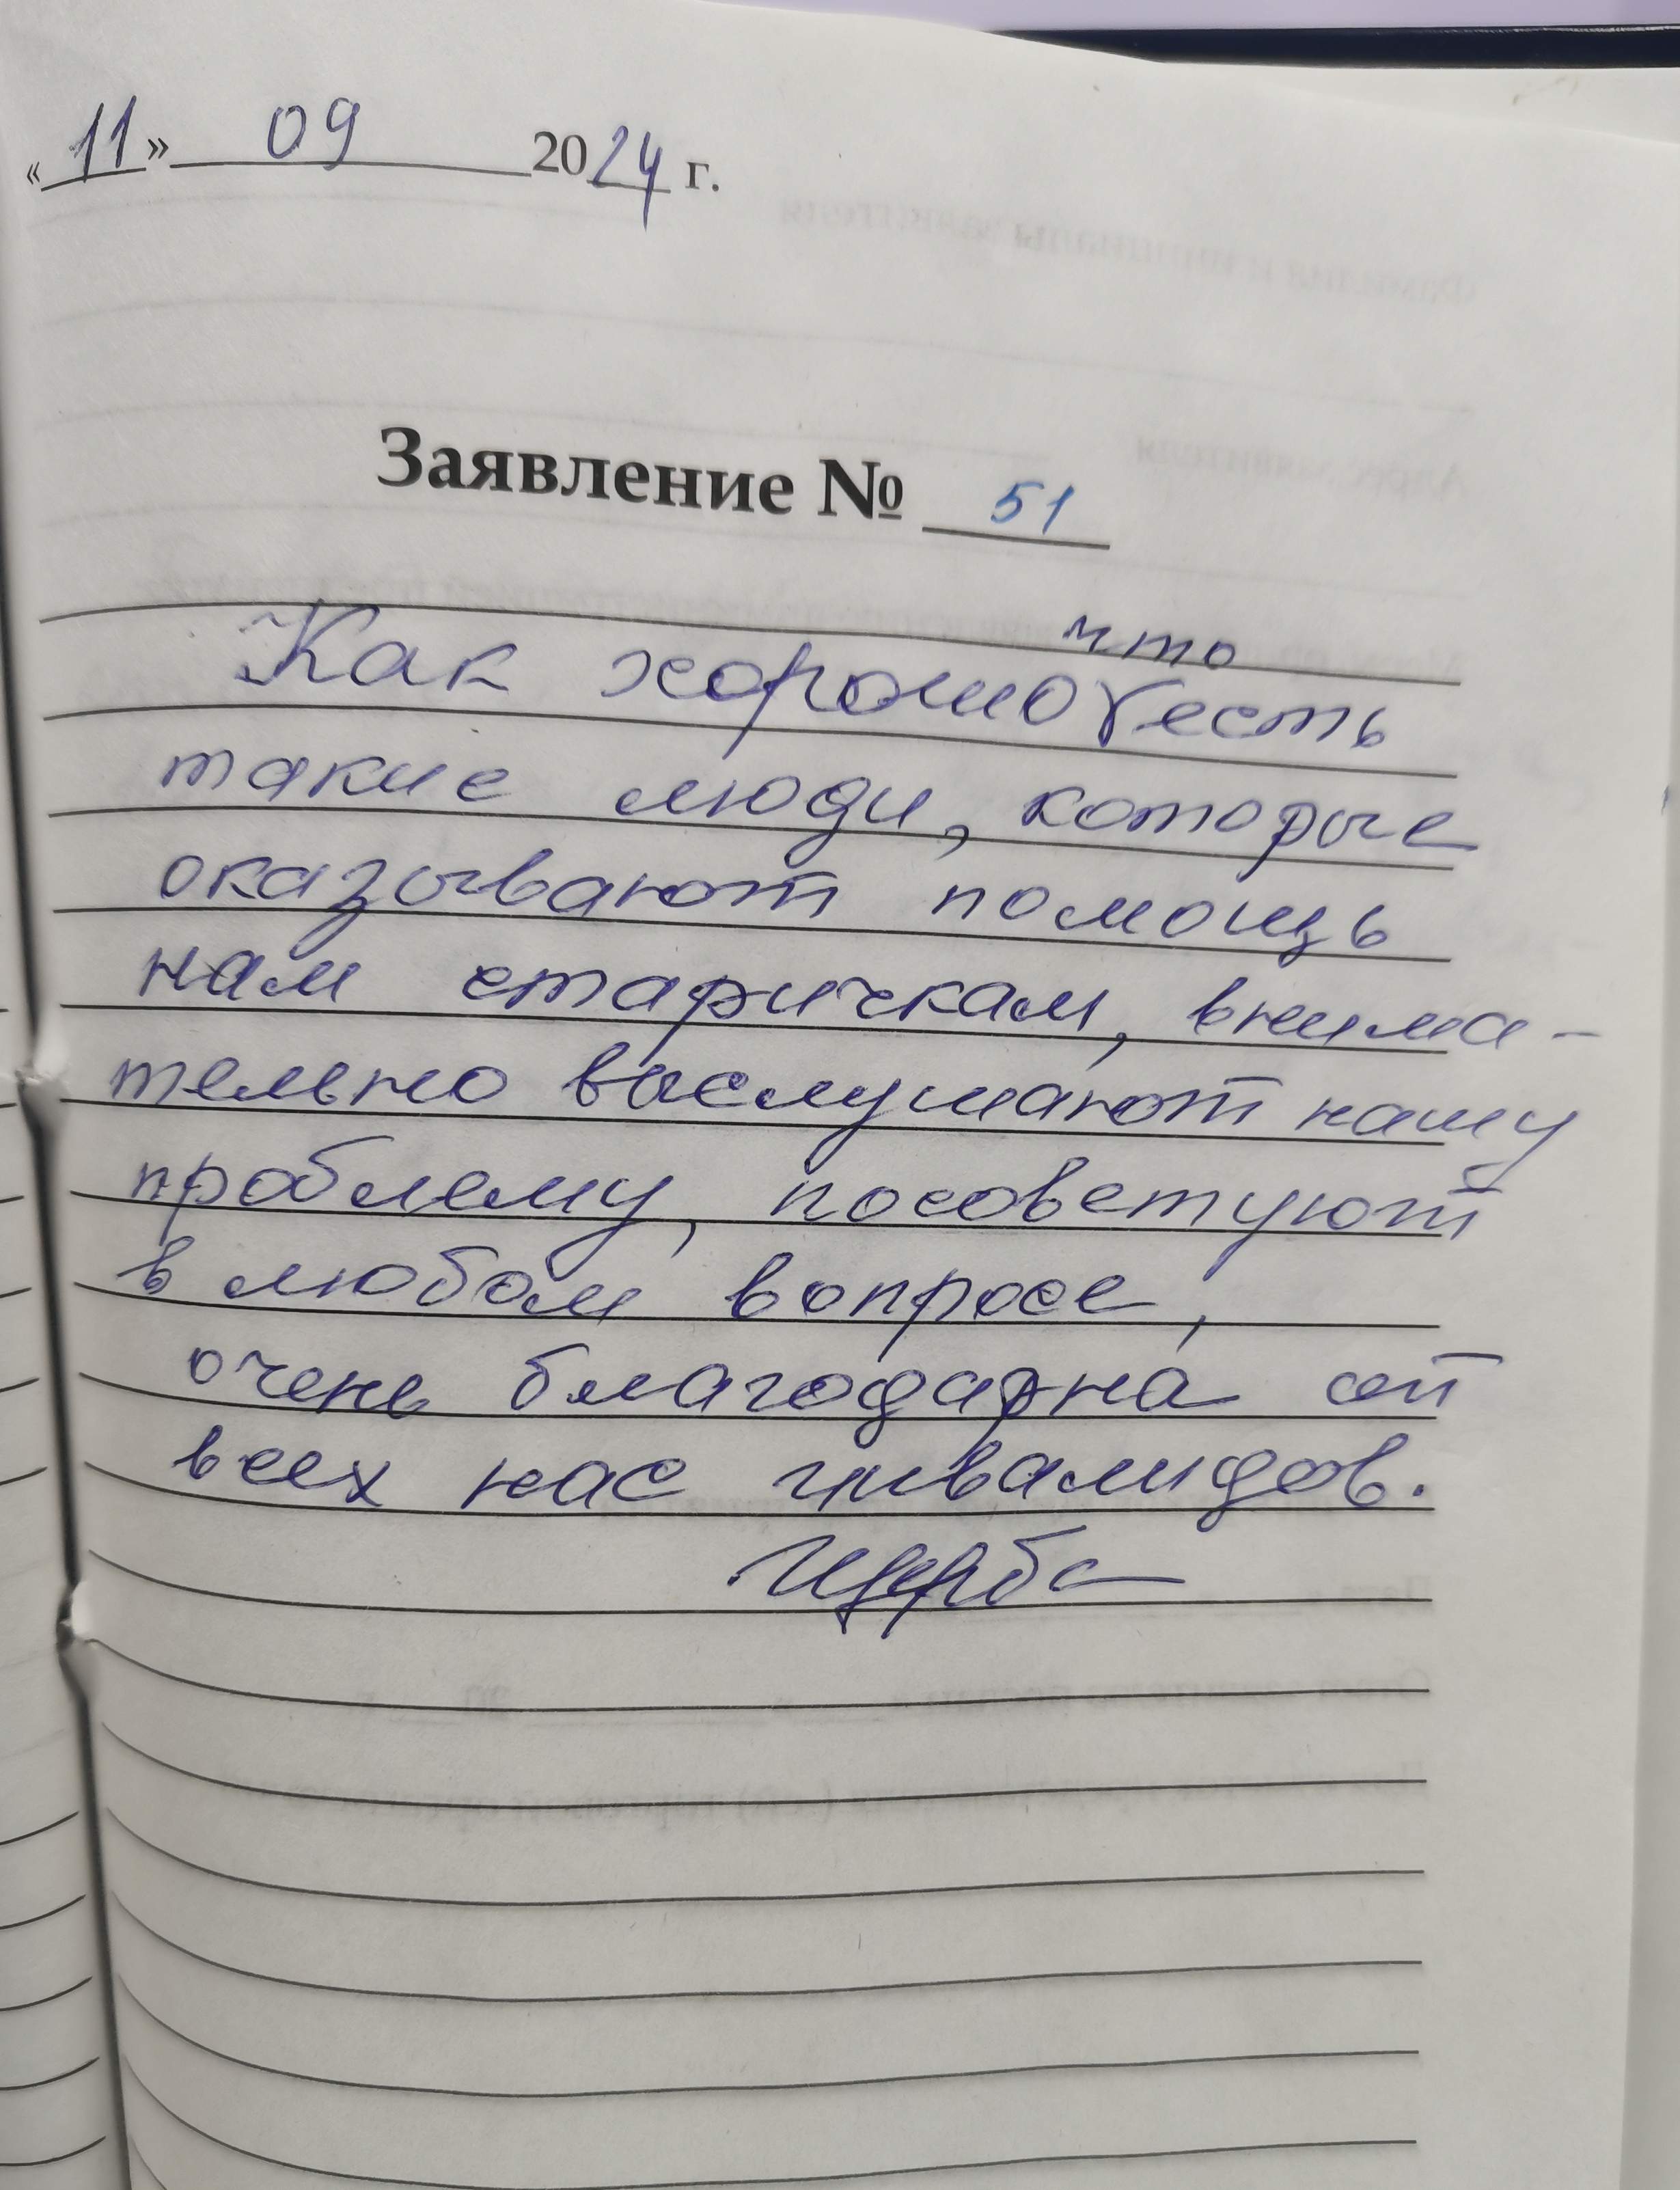 «11» 09 2024 г.
Заявление № 51
Как хорошо что есть
такие люди, которые
оказывают помощь
нам старичкам, внима-
тельно выслушают нашу
проблему, посоветуют
в любом вопросе,
очень благодарна от
всех нас инвалидов.